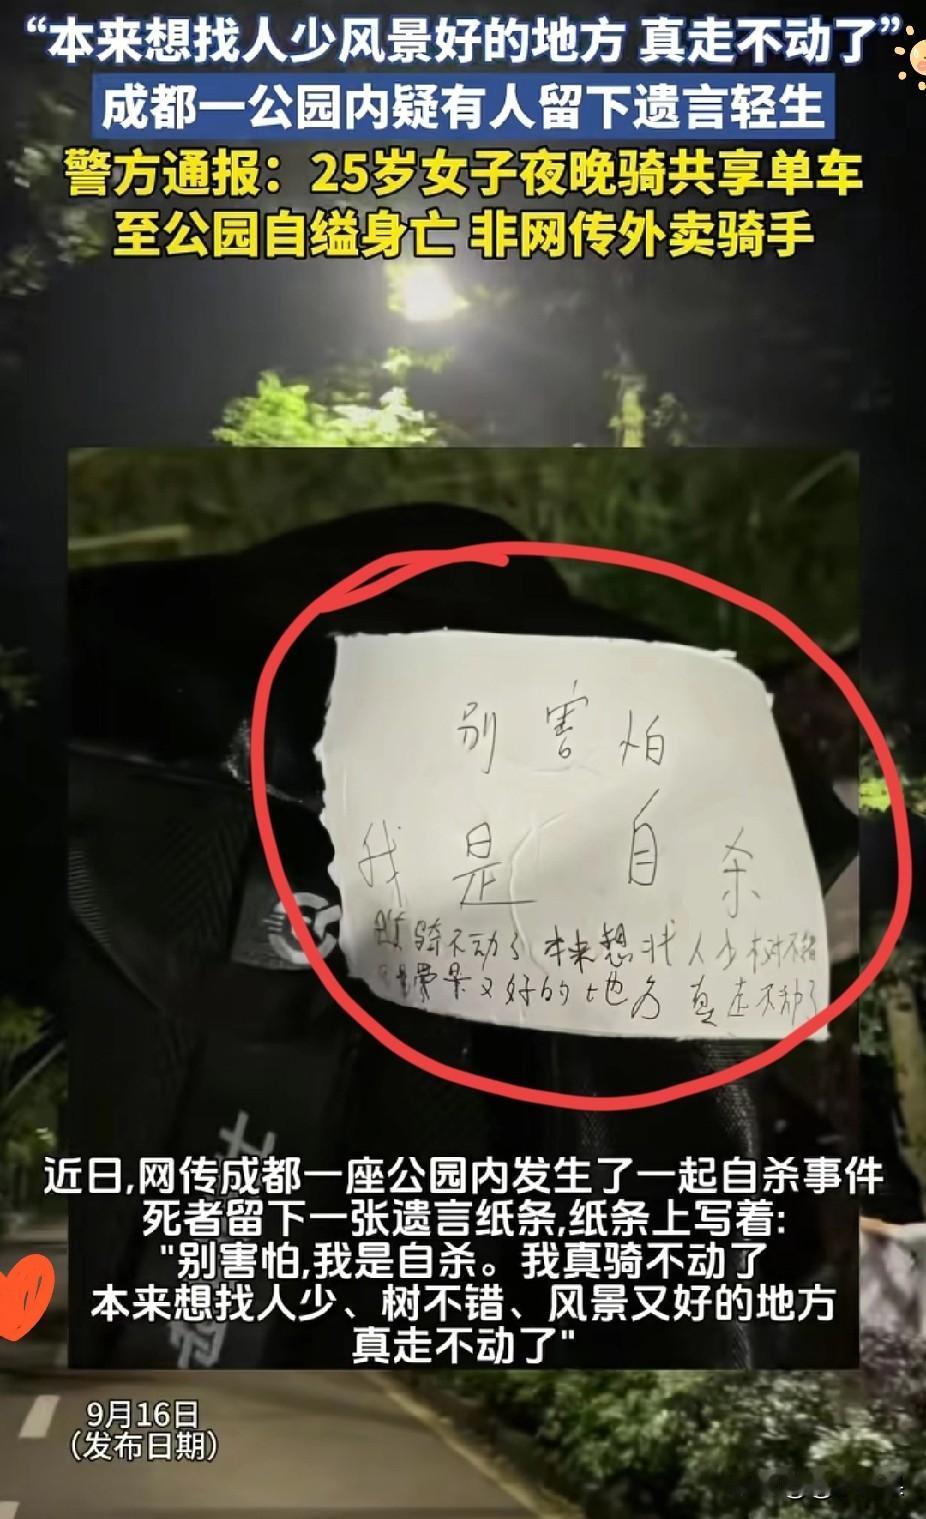 “本来想找人少风景好的地方 真走不动了”
成都一公园内疑有人留下遗言轻生
警方通报：25岁女子夜晚骑共享单车
至公园自缢身亡 非网传外卖骑手
别害怕
我是自杀
骑不动了 本来想找人少树不错
风景又好的地方 真走不动了
近日,网传成都一座公园内发生了一起自杀事件
死者留下一张遗言纸条,纸条上写着:
"别害怕,我是自杀。我真骑不动了
本来想找人少、树不错、风景又好的地方
真走不动了"
9月16日
(发布日期)